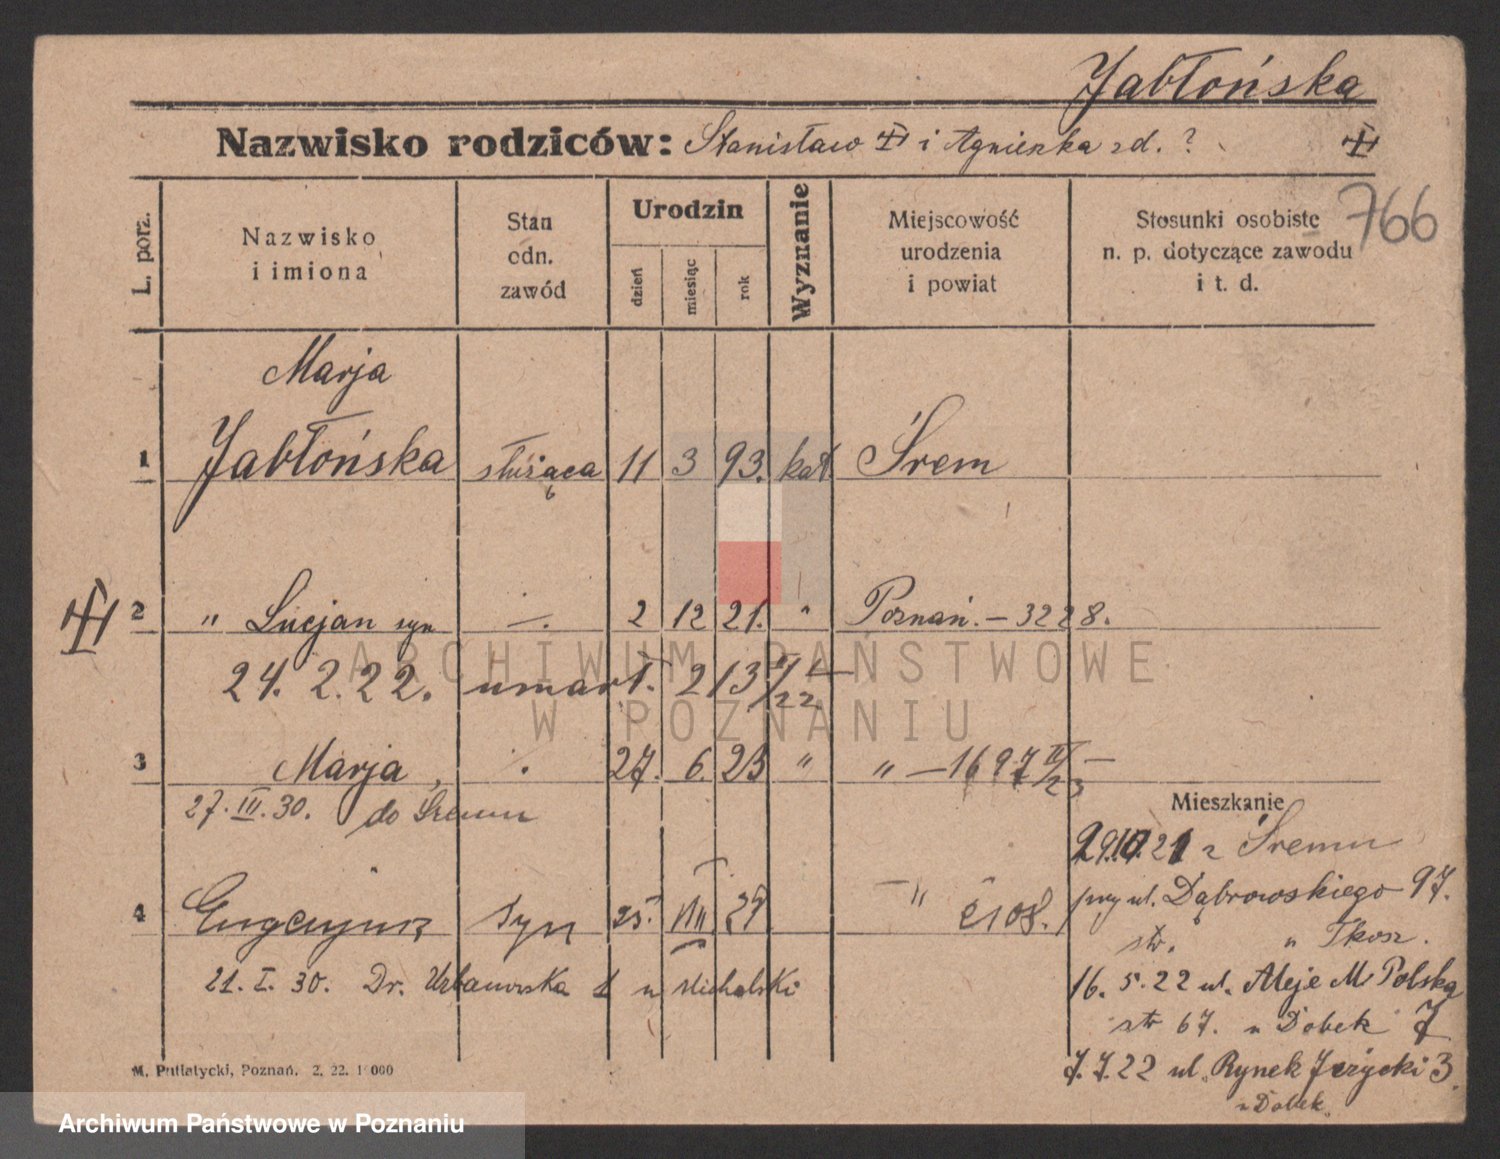 Jabłońska
Nazwisko rodziców: Stanisław i Agnieszka zd. ?
766
L. porz.
Nazwisko
i imiona
Stan
odn.
zawód
Urodzin
dzień
miesiąc
rok
Wyznanie
Miejscowość
urodzenia
i powiat
Stosunki osobiste
n. p. dotyczące zawodu
i t. d.
Marja
1 Jabłońska służąca 11 3 93. kat. Śrem
2 " Lucjan syn —. 2 12 21. " Poznań. – 3228.
24. 2. 22. umarł. 213 II/22 –
3 Marja, . 27. 6. 23 " " – 1697 IV/23 –
27. III. 30. do Śremu
Mieszkanie
29.10.21 z Śremu
4 Eugenjusz syn 25. VII 29 – " 2108.
przy ul. Dąbrowskiego 97.
str. u Tkosz.
21. I. 30. Dr. Urbanowska 1 u Michalski
16. 5. 22 ul. Aleje M. Polska
str 67. u Dobek 7
7. 7. 22 ul. Rynek Jeżycki 3.
u Dobek
M. Putiatycki, Poznań. 2. 22. 1 000
ARCHIWUM PAŃSTWOWE
W POZNANIU
Archiwum Państwowe w Poznaniu